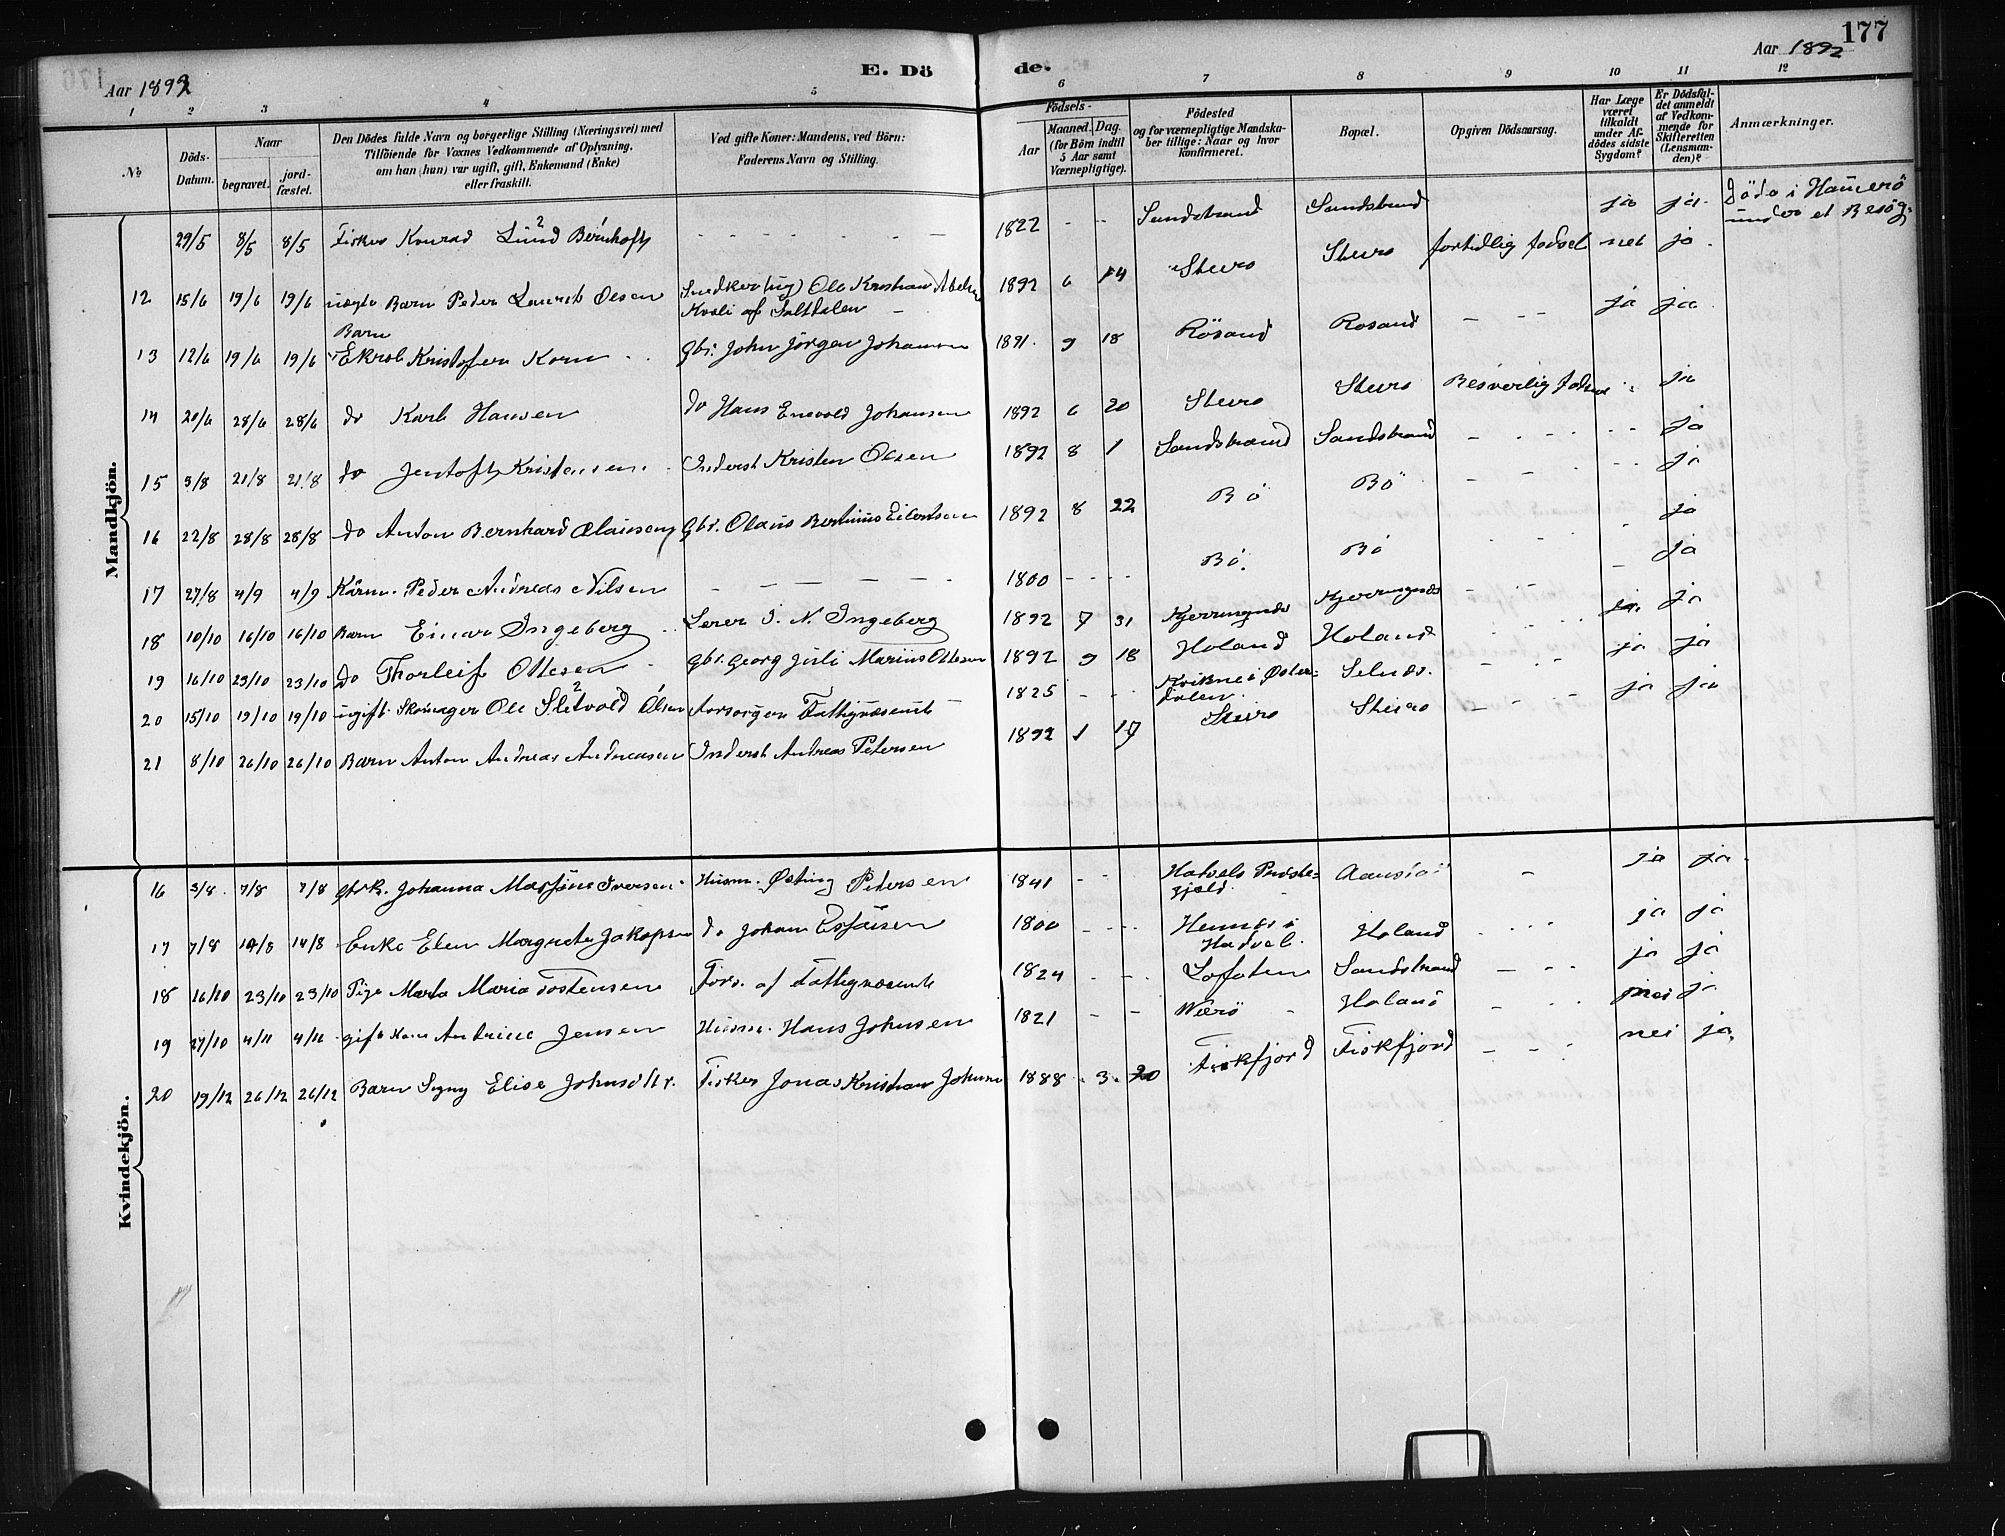 177
Aar 1892
E. Dö de.
Aar 1892
1 2 3 4 5 6 7 8 9 10 11 12
№
Döds-Datum.
Naar
begravet.
jord-fæstet.
Den Dödes fulde Navn og borgerlige Stilling (Næringsvei) med
Tilföiende for Voxnes Vedkommende af Oplysning,
om han (hun) var ugift, gift, Enkemand (Enke)
eller fraskilt.
Ved gifte Koner: Mandens, ved Börn:
Faderens Navn og Stilling.
Födsels-
Aar
Maaned. Dag.
(for Börn indtil
5 Aar samt
Værnepligtige).
Födested
og for værnepligtige Mandska-
ber tillige: Naar og hvor
konfirmeret.
Bopæl.
Opgiven Dödsaarsag.
Har Læge
været
tilkaldt
under Af-
dödes sidste
Sygdom?
Er Dödsfal-
det anmeldt
af Vedkom-
mende for
Skifteretten
(Lensman-
den)?
Anmærkninger.
Mandkjön.
29/5 8/5 8/5 Fisker Konrad Lund Bernhoft - - - 1822 - - Sandstrand Sandstrand ja ja Döde i Hamerö under et Besög
12 15/6 19/6 19/6 uægte Barn Peder Laurits Olsen Snedker (ug) Ole Kristian Kvali af Saltdalen 1892 6 14 Steiro Steiro fortidlig födsel nei ja
13 12/6 19/6 19/6 Barn Ekrol Kristofer Korn Gbr. John Jörgen Johansen 1891 9 18 Rösand Rosand - - ja ja
14 20/6 28/6 28/6 do Karl Hansen do Hans Enevold Johansen 1892 6 20 Steiro Steiro Besverlig födsel ja
15 3/8 21/8 21/8 do Jentoft Kristensen Inderst Kristen Olsen 1892 8 1 Sandstrand Sandstrand - - ja
16 22/8 28/8 28/8 do Anton Bernhard Olausen Gbr. Olaus Bertinus Eilertsen 1892 8 22 Bö Bö - - ja
17 27/8 4/9 4/9 Peder Andreas Nilsen - - - 1800 - - Bö Bö - - ja
18 10/10 16/10 16/10 Barn Einar Ingeberg Lerer J. N. Ingeberg 1892 7 31 Kjerringnes Kjerringnes - ja
19 16/10 23/10 23/10 do Thorleif Ottesen Gbr. Georg Juli Marius Ottesen 1892 9 18 Holand Holand ja ja
20 15/10 19/10 19/10 ugift Skomager Ole Sletvold Olsen Forsorgen Fattigvæsenet 1825 - - Kvikne i Österdalen Selnes ja ja
21 8/10 26/10 26/10 Barn Anton Andreas Andreasen Inderst Andreas Petersen 1892 1 17 Steiro Steiro - - ja ja
Kvindekjön.
16 3/8 7/8 7/8 Johanna Iversen Husm. Østing Petersen 1841 - - Hatsels Prestegjeld - ja ja
17 7/8 14/8 14/8 Enke Elen Margrete Jakopsen do Johan Esaisen 1800 - - Hadsel Holand ja ja
18 16/10 23/10 23/10 Pige Marta Maria Tostensen Fors. af Fattigvæsenet 1824 - - Lofoten Sandstrand ja ja
19 27/10 4/11 4/11 gift Kone Andrine Jensen Husm. Hans Johnsen 1821 - - Værö Holand nei ja
20 19/12 26/12 26/12 Barn Signy Elise Johnsdtr. Fisker Jonas Kristian Johnsen 1888 3 20 Fiskfjord Fiskfjord - - nei ja